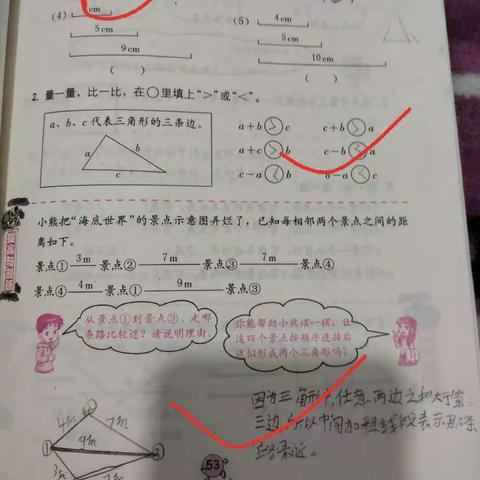 cm
(4)
(5)
4cm
5cm
5cm
9cm
10cm
( )
( )
2. 量一量、比一比，在○里填上“>”或“<”。
a、b、c代表三角形的三条边。
a b c
a+b > c
c+b > a
a+c > b
c-b < a
c-a < b
b-a < c
小熊把“海底世界”的景点示意图弄烂了，已知每相邻两个景点之间的距
离如下。
景点① 3m 景点② 7m 景点③ 7m 景点④
景点④ 4m 景点① 9m 景点③
从景点①到景点③，走哪
条路比较近？请说明理由。
你能帮助小熊摆一摆，让
这四个景点按顺序连接后
近似形成两个三角形吗？
因为三角形中,任意两边之和大于第三
三边,所以中间加粗线段表示
最近。
4m 7m
① 9m 3
3m
53